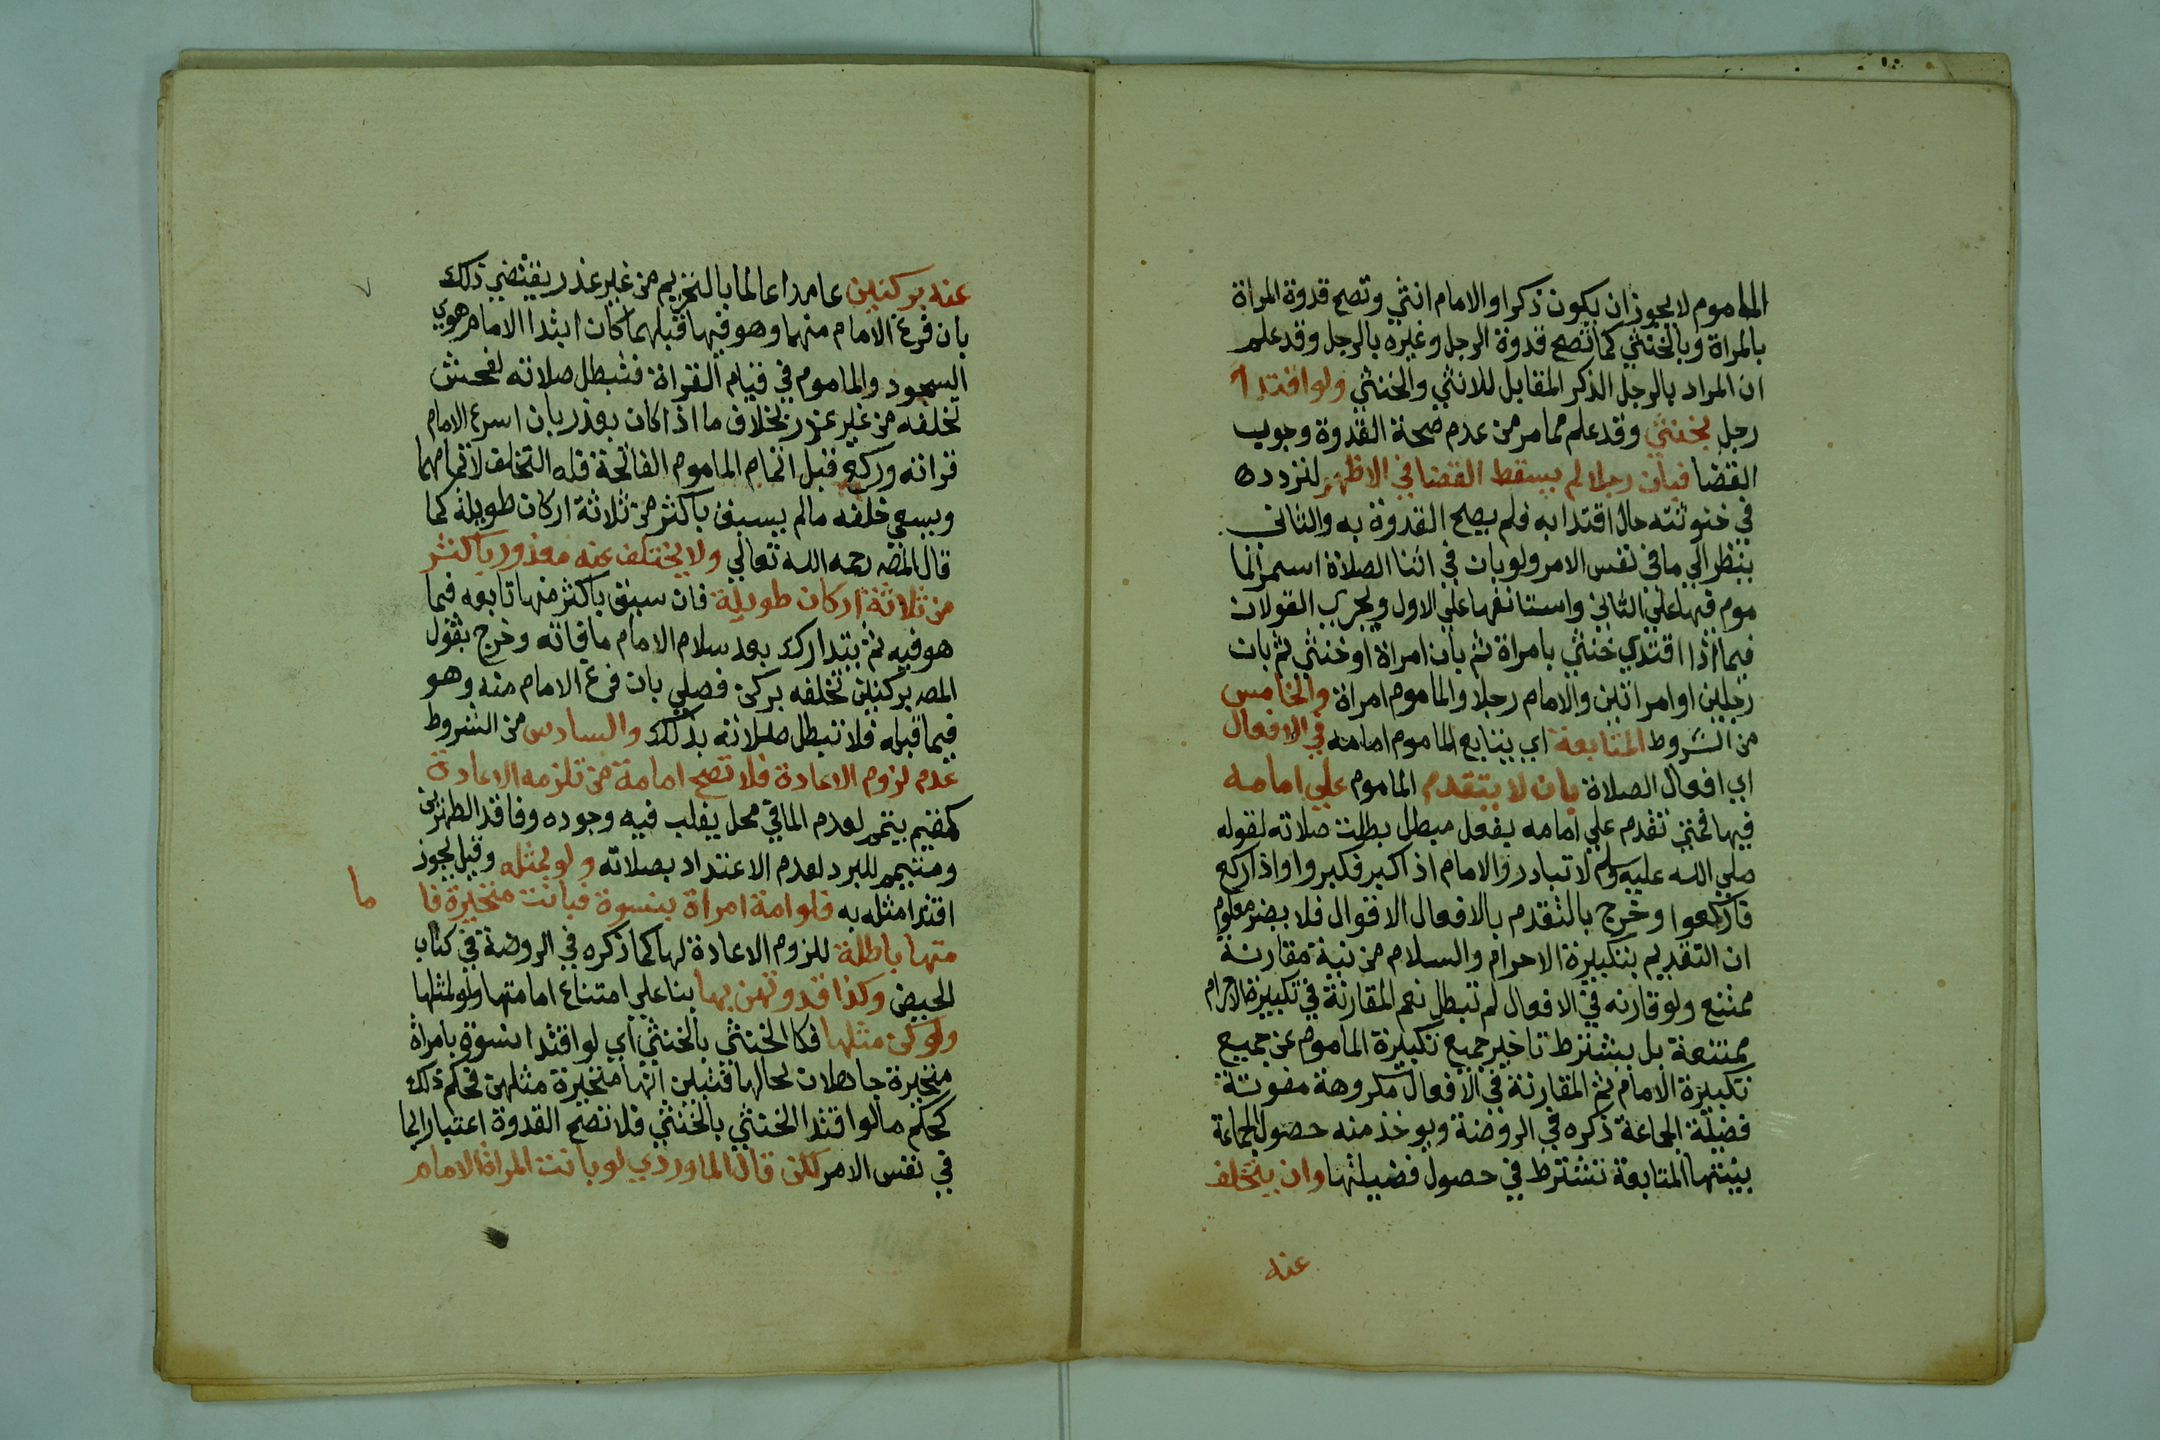 الماموم لا يجوز ان يكون ذكرا والامام انثي وتصح قدوة المراة
بالمراة وبالخنثي كما تصح قدوة الرجل وغيره بالرجل وقد علم
ان المراد بالرجل الذكر المقابل للانثي والخنثي ولو اقتدا
رجل بخنثي وقد علم مما مر من عدم صحة القدوة وجوب
القضا فبان رجلا لم يسقط القضا في الاظهر لتردده
في خنوثته حال اقتدا به فلم يصح القدوة به والثاني
ينظر الي ما في نفس الامر ولو بان في اثنا الصلاة استمر الما
موم فيها علي الثاني واستانفها علي الاول ويجري القولان
فيما اذا اقتدي خنثي بامراة ثم بان امراة او خنثي ثم بان
رجلين او امراتين والامام رجلا والماموم امراة والخامس
من الشروط المتابعة اي يتابع الماموم امامه في الافعال
اي افعال الصلاة بان لا يتقدم الماموم علي امامه
فيها فمتي تقدم علي امامه بفعل مبطل بطلت صلاته لقوله
صلي الله عليه وسلم لا تبادروا الامام اذا كبر فكبروا واذا ركع
فاركعوا وخرج بالتقدم بالافعال الاقوال فلا يضر معلوم
ان التقديم بتكبيرة الاحرام والسلام من نية مقارنة
ممتنع ولو قارنه في الافعال لم تبطل نعم المقارنة في تكبيرة الاحرام
ممتنعة بل يشترط تاخير جميع تكبيرة الماموم عن جميع
تكبيرة الامام ثم المقارنة في الافعال مكروهة مفوتة
فضيلة الجاعة ذكره في الروضة ويوخذ منه حصول الجماعة
بينتها المتابعة تشترط في حصول فضيلتها وان يتخلف
عنه
عنه بركنين عامدا عالما بالتحريم من غير عذر يقتضي ذلك
بان فرغ الامام منهما وهو فيها قبلهما كان ابتدا الامام هوي
السجود والماموم في قيام القراة فتبطل صلاته لفحش
تخلفه من غير عذر بخلاف ما اذا كان بعذر بان اسرع الامام
قراته وركع قبل اتمام الماموم الفاتحة فله التخلف لاتمامها
ويسعي خلفه ما لم يسبق باكثر من ثلاثة اركان طويلة كما
قال المصـ رحمه الله تعالي ولا يختلف عنه معذور باكثر
من ثلاثة اركان طويلة فان سبق باكثر منها تابعه فيما
هو فيه ثم يتدارك بعد سلام الامام ما فاته وخرج بقول
المصـ بركنين تخلفه بركن فصلي بان فرغ الامام منه وهو
فيما قبله فلا تبطل صلاته بذلك والسادس من الشروط
عدم لزوم الاعادة فلا تصح امامة من تلزمه الاعادة
كمقيم يتيمم لعدم الما في محل يغلب فيه وجوده وفاقد الطهرين
ومتيمم للبرد لعدم الاعتداد بصلاته ولو بمثله وقيل يجوز
اقتدا مثله به فلو امة امراة بنسوة فبانت متحيرة فا
ما
متها باطلة للزوم الاعادة لها كما ذكره في الروضة في كتاب
الحيض وكذا قدوتهن بها بنا علي امتناع امامتها ولو لمثلها
ولو كن مثلها فكالخنثي بالخنثي اي لو اقتدا نسوة بامراة
متحيرة جاهلات بحالها فتبين انها متحيرة مثلهن فحكم ذلك
كحكم ما لو اقتدا الخنثي بالخنثي فلا تصح القدوة اعتبارا بما
في نفس الامر لكن قال الماوردي لو بانت المراة الامام